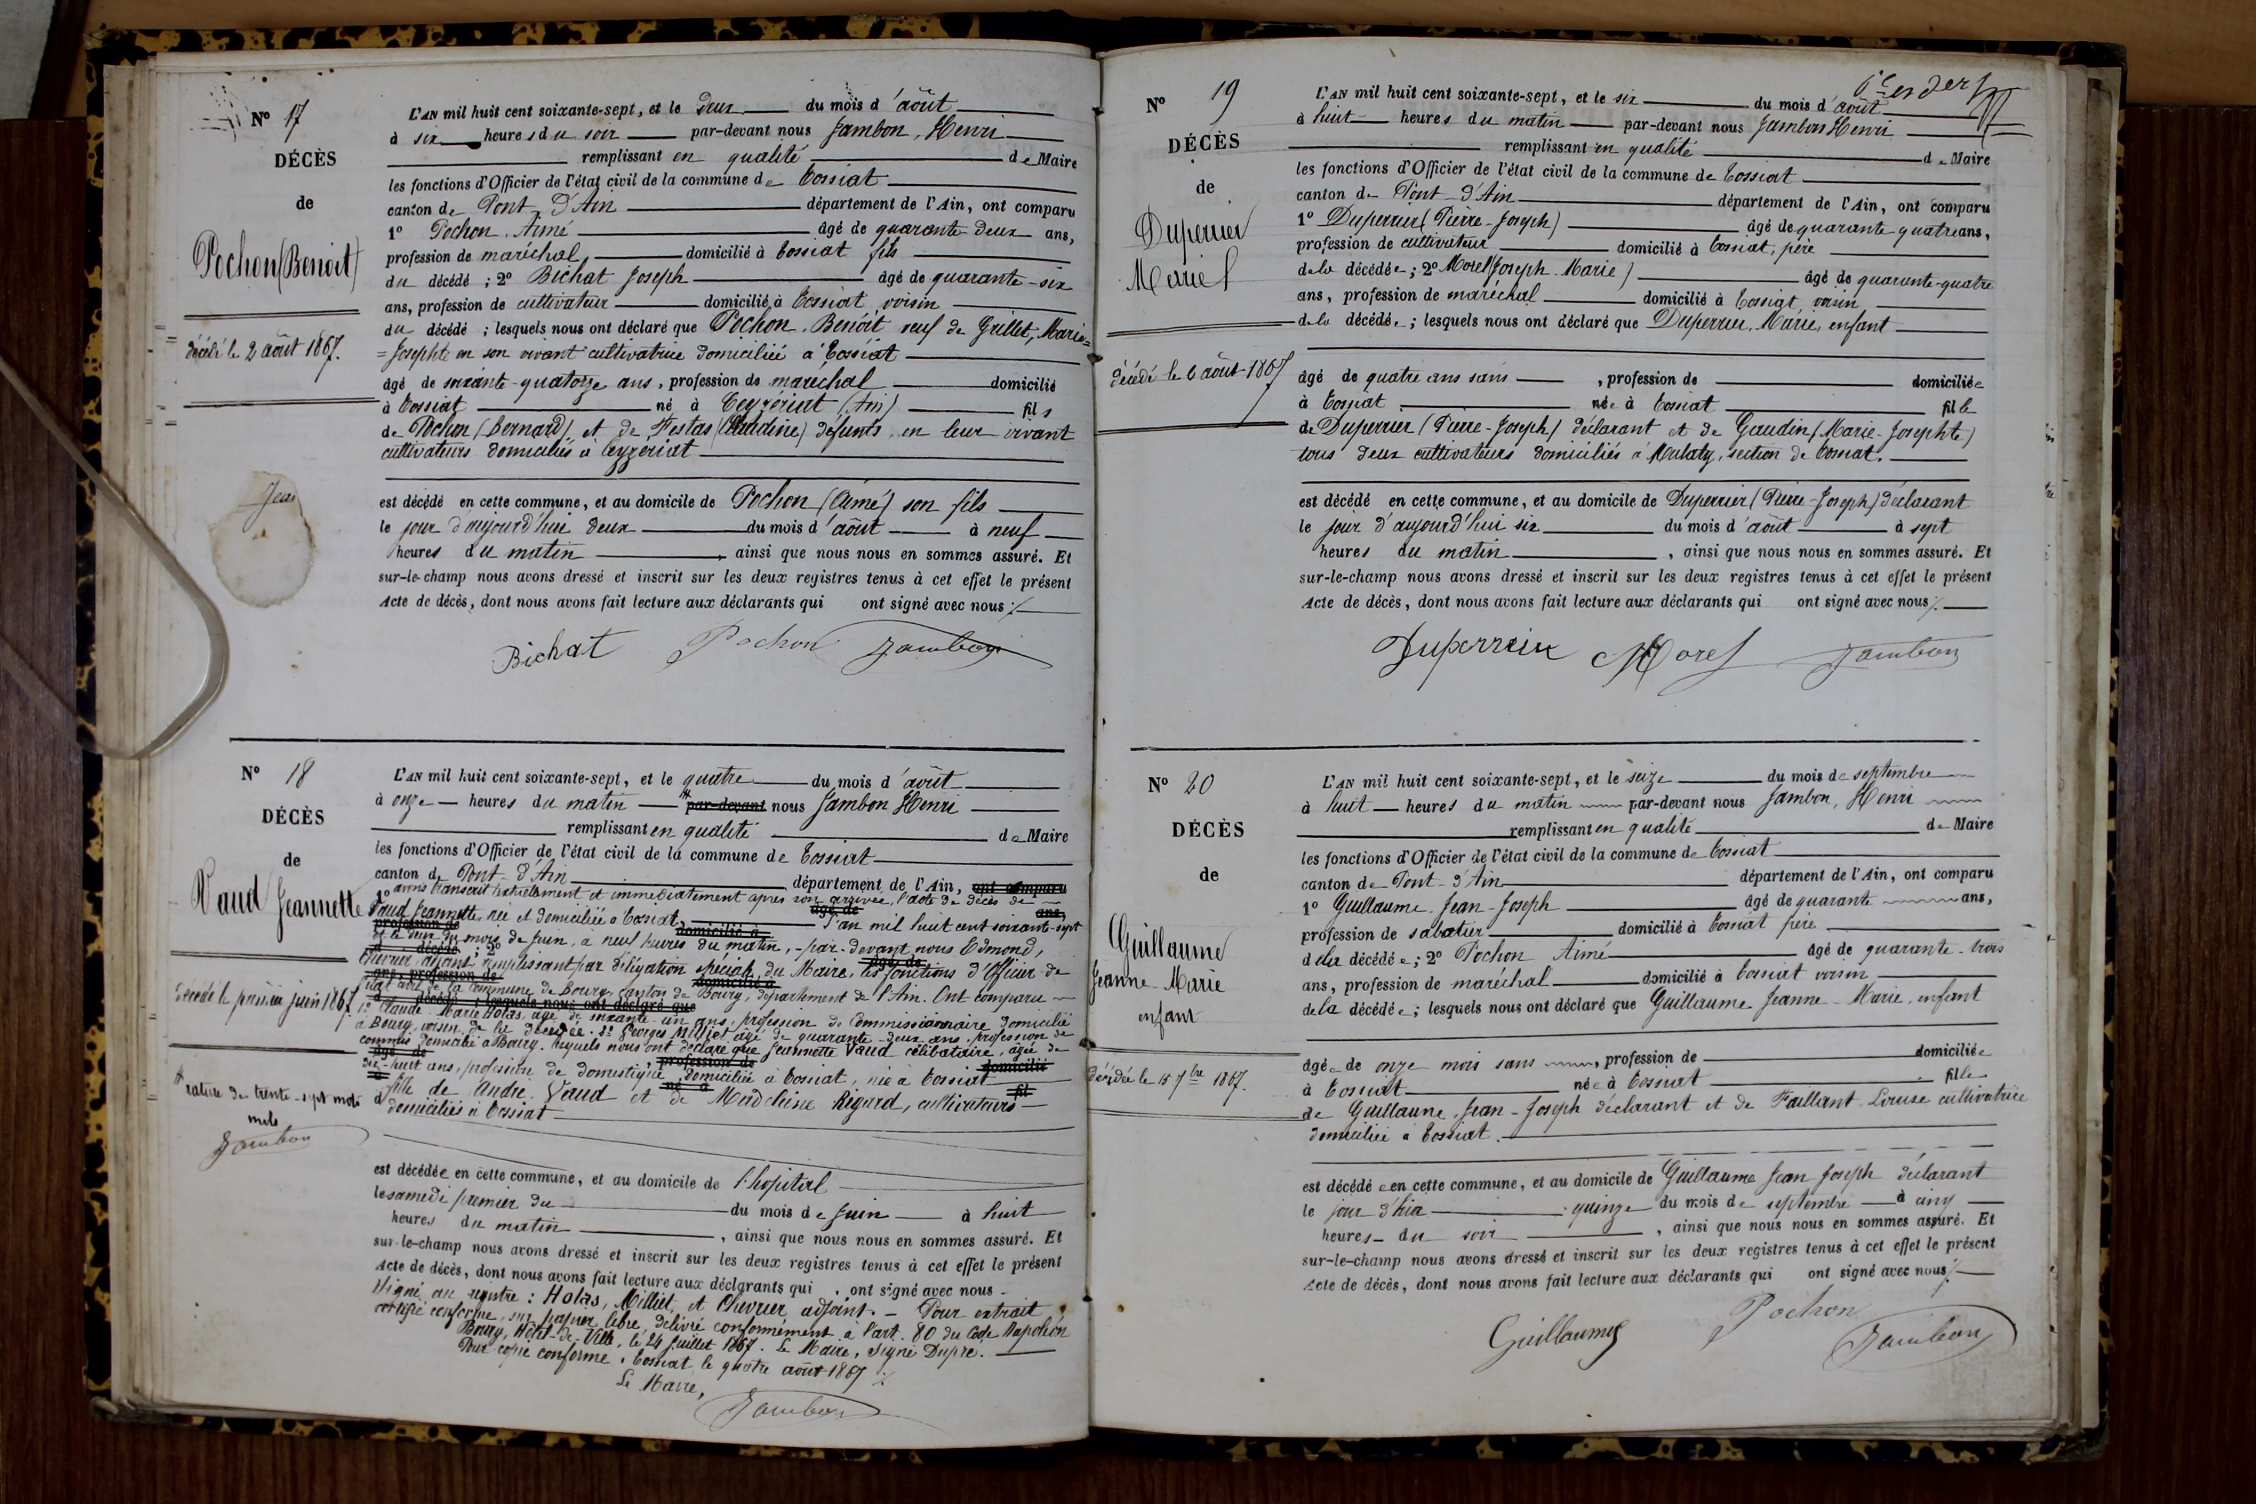 Nº 17
DÉCÈS
de
Pochon (Benoit)
décédé le 2 août 1867.
L'AN mil huit cent soixante-sept, et le deux du mois d'août
à six heures du soir par-devant nous Jambon, Henri
remplissant en qualité de Maire
les fonctions d'Officier de l'état civil de la commune de Tossiat
canton de Pont-d'Ain département de l'Ain, ont comparu
1º Pochon, Aimé âgé de quarante deux ans,
profession de maréchal domicilié à Tossiat fils
du décédé ; 2º Bichat Joseph âgé de quarante-six
ans, profession de cultivateur domicilié à Tossiat voisin
du décédé ; lesquels nous ont déclaré que Pochon, Benoît veuf de Grillet, Marie=
=Josephte en son vivant cultivatrice domiciliée à Tossiat
âgé de soixante-quatorze ans, profession de maréchal domicilié
à Tossiat né à Ceyzériat (Ain) fils
de Pochon (Bernard) et de Festas (Claudine) défunts en leur vivant
cultivateurs domiciliés à Ceyzeriat
Jean
est décédé en cette commune, et au domicile de Pochon (Aimé) son fils
le jour d'aujourd'hui deux du mois d'août à neuf
heures du matin, ainsi que nous nous en sommes assuré. Et
sur-le-champ nous avons dressé et inscrit sur les deux registres tenus à cet effet le présent
Acte de décès, dont nous avons fait lecture aux déclarants qui ont signé avec nous ./.
Bichat Pochon Jambon
Nº 18
DÉCÈS
de
Vaud Jeannette
décédée le premier juin 1867
rature de trente-sept mots
nuls
Jambon
L'AN mil huit cent soixante-sept, et le quatre du mois d'août
à onze heures du matin par-devant nous Jambon Henri
remplissant en qualité de Maire
les fonctions d'Officier de l'état civil de la commune de Tossiat
canton de Pont-d'Ain département de l'Ain, ont comparu
1º avons transcrit textuellement et immédiatement après son arrivée, l'acte de décès de
âgé de ans,
Vaud Jeannette, née et domiciliée à Tossiat. L'an mil huit cent soixante-sept
profession de domicilié à
et le deux du mois de Juin, à neuf heures du matin, par-devant nous Edmond,
d décédé ; 2º âgé de
Chevrier adjoint remplissant par délégation spéciale du Maire, les fonctions d'Officier de
ans, profession de domicilié à
l'état civil de la commune de Bourg, canton de Bourg, département de l'Ain. Ont comparu
d décédé ; lesquels nous ont déclaré que
1º Claude-Marie Holas, âgé de soixante-un ans, profession de Commissionnaire domicilié
à Bourg, voisin de la décédée. 2º Georges Milliet, âgé de quarante-deux ans, profession de
commis domicilié à Bourg. Lesquels nous ont déclaré que Jeannette Vaud célibataire, âgée de
âgé de profession de domicilié
dix-huit ans, profession de domestique, domiciliée à Tossiat, née à Tossiat
à né à fil
fille de André Vaud et de Madeleine Rigard, cultivateurs
d domiciliés à Tossiat
est décédée en cette commune, et au domicile de l'hopital
le samedi premier du du mois de Juin à huit
heures du matin, ainsi que nous nous en sommes assuré. Et
sur-le-champ nous avons dressé et inscrit sur les deux registres tenus à cet effet le présent
Acte de décès, dont nous avons fait lecture aux déclarants qui, ont signé avec nous.
Signé au registre : Holas, Milliet, et Chevrier adjoint. — Pour extrait
certifié conforme, sur papier libre, délivré conformément à l'art. 80 du Code Napoléon
Bourg, Hôtel-de-Ville, le 24 Juillet 1867. Le Maire, signé Dupré.
Pour copie conforme, Tossiat le quatre août 1867 ./.
Le Maire,
Jambon
Nº 19
DÉCÈS
de
Duperrier
Marie
décédé le 6 août 1867
L'AN mil huit cent soixante-sept, et le six du mois d'août
à huit heures du matin par-devant nous Jambon Henri
remplissant en qualité de Maire
les fonctions d'Officier de l'état civil de la commune de Tossiat
canton de Pont-d'Ain département de l'Ain, ont comparu
1º Duperrier (Pierre-Joseph) âgé de quarante quatre ans,
profession de cultivateur domicilié à Tossiat, père
de la décédée ; 2º Morel (Joseph-Marie) âgé de quarante-quatre
ans, profession de maréchal domicilié à Tossiat, voisin
de la décédée ; lesquels nous ont déclaré que Duperrier, Marie, enfant
âgé de quatre ans sans, profession de domiciliée
à Tossiat née à Tossiat fille
de Duperrier (Pierre-Joseph) déclarant et de Gaudin (Marie-Josephte)
tous deux cultivateurs domiciliés à Malaty, section de Tossiat.
est décédé en cette commune, et au domicile de Duperrier (Pierre-Joseph) déclarant
le jour d'aujourd'hui six du mois d'août à sept
heures du matin, ainsi que nous nous en sommes assuré. Et
sur-le-champ nous avons dressé et inscrit sur les deux registres tenus à cet effet le présent
Acte de décès, dont nous avons fait lecture aux déclarants qui ont signé avec nous ./.
Duperrier Morel Jambon
Nº 20
DÉCÈS
de
Guillaume
Jeanne-Marie
enfant
décédée le 15 7bre 1867.
L'AN mil huit cent soixante-sept, et le seize du mois de septembre
à huit heures du matin par-devant nous Jambon, Henri
remplissant en qualité de Maire
les fonctions d'Officier de l'état civil de la commune de Tossiat
canton de Pont-d'Ain département de l'Ain, ont comparu
1º Guillaume Jean-Joseph âgé de quarante ans,
profession de sabotier domicilié à Tossiat père
de la décédée ; 2º Pochon Aimé âgé de quarante-trois
ans, profession de maréchal domicilié à Tossiat voisin
de la décédée ; lesquels nous ont déclaré que Guillaume Jeanne-Marie, enfant
âgée de onze mois sans, profession de domiciliée
à Tossiat née à Tossiat fille
de Guillaume, Jean-Joseph déclarant et de Faillant Louise cultivatrice
domiciliée à Tossiat.
est décédée en cette commune, et au domicile de Guillaume Jean Joseph déclarant
le jour d'hier quinze du mois de septembre à cinq
heures du soir, ainsi que nous nous en sommes assuré. Et
sur-le-champ nous avons dressé et inscrit sur les deux registres tenus à cet effet le présent
Acte de décès, dont nous avons fait lecture aux déclarants qui ont signé avec nous ./.
Guillaume Pochon Jambon